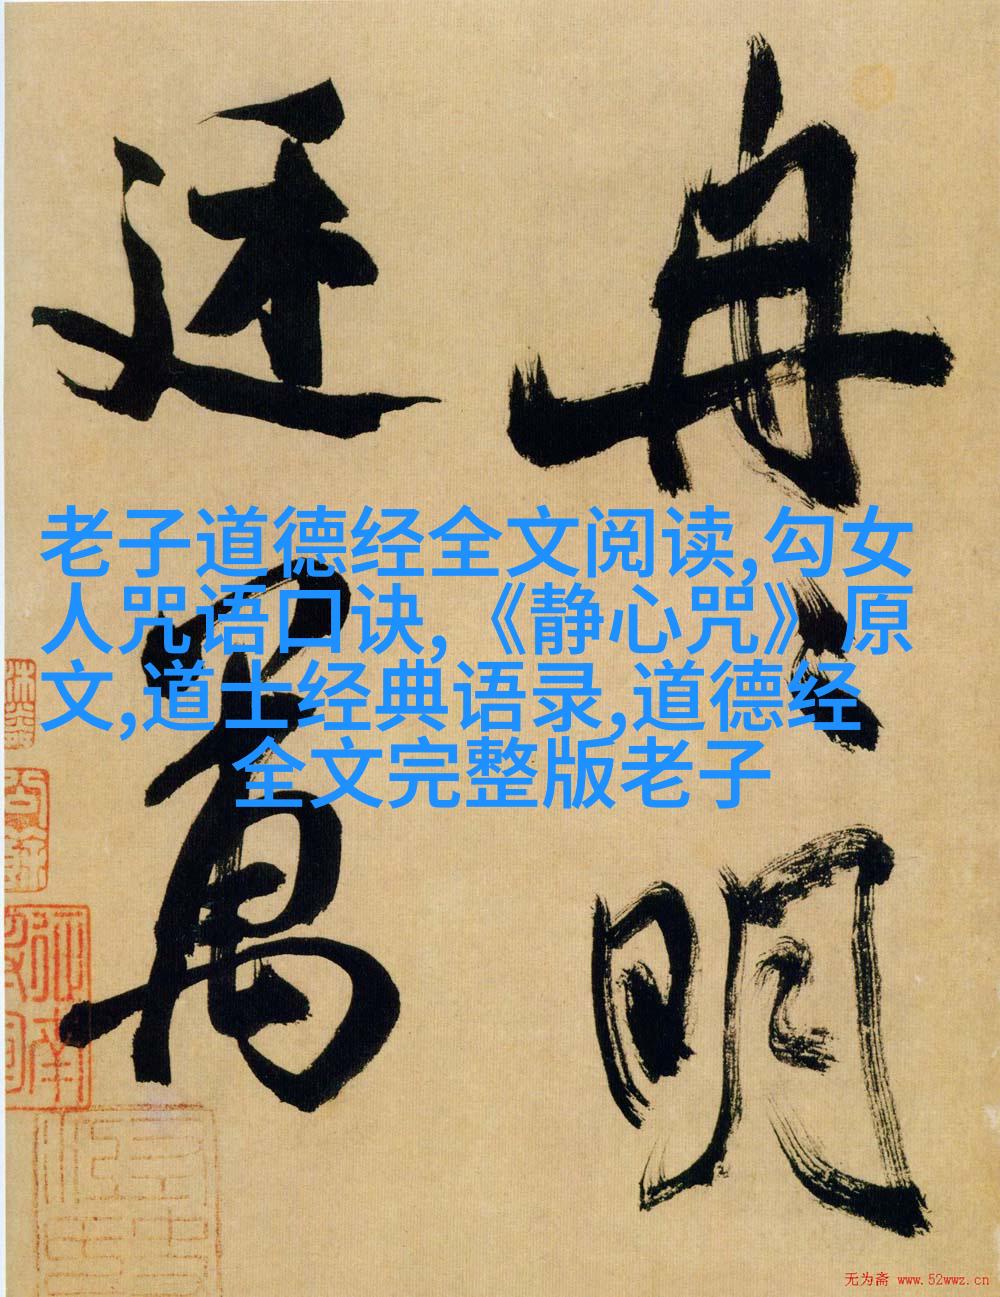 冉明
萬
老子道德经全文阅读,勾女
人咒语口诀,《静心咒》原
文,道士经典语录,道德经
全文完整版老子
无为斋 www.52wwz.cn